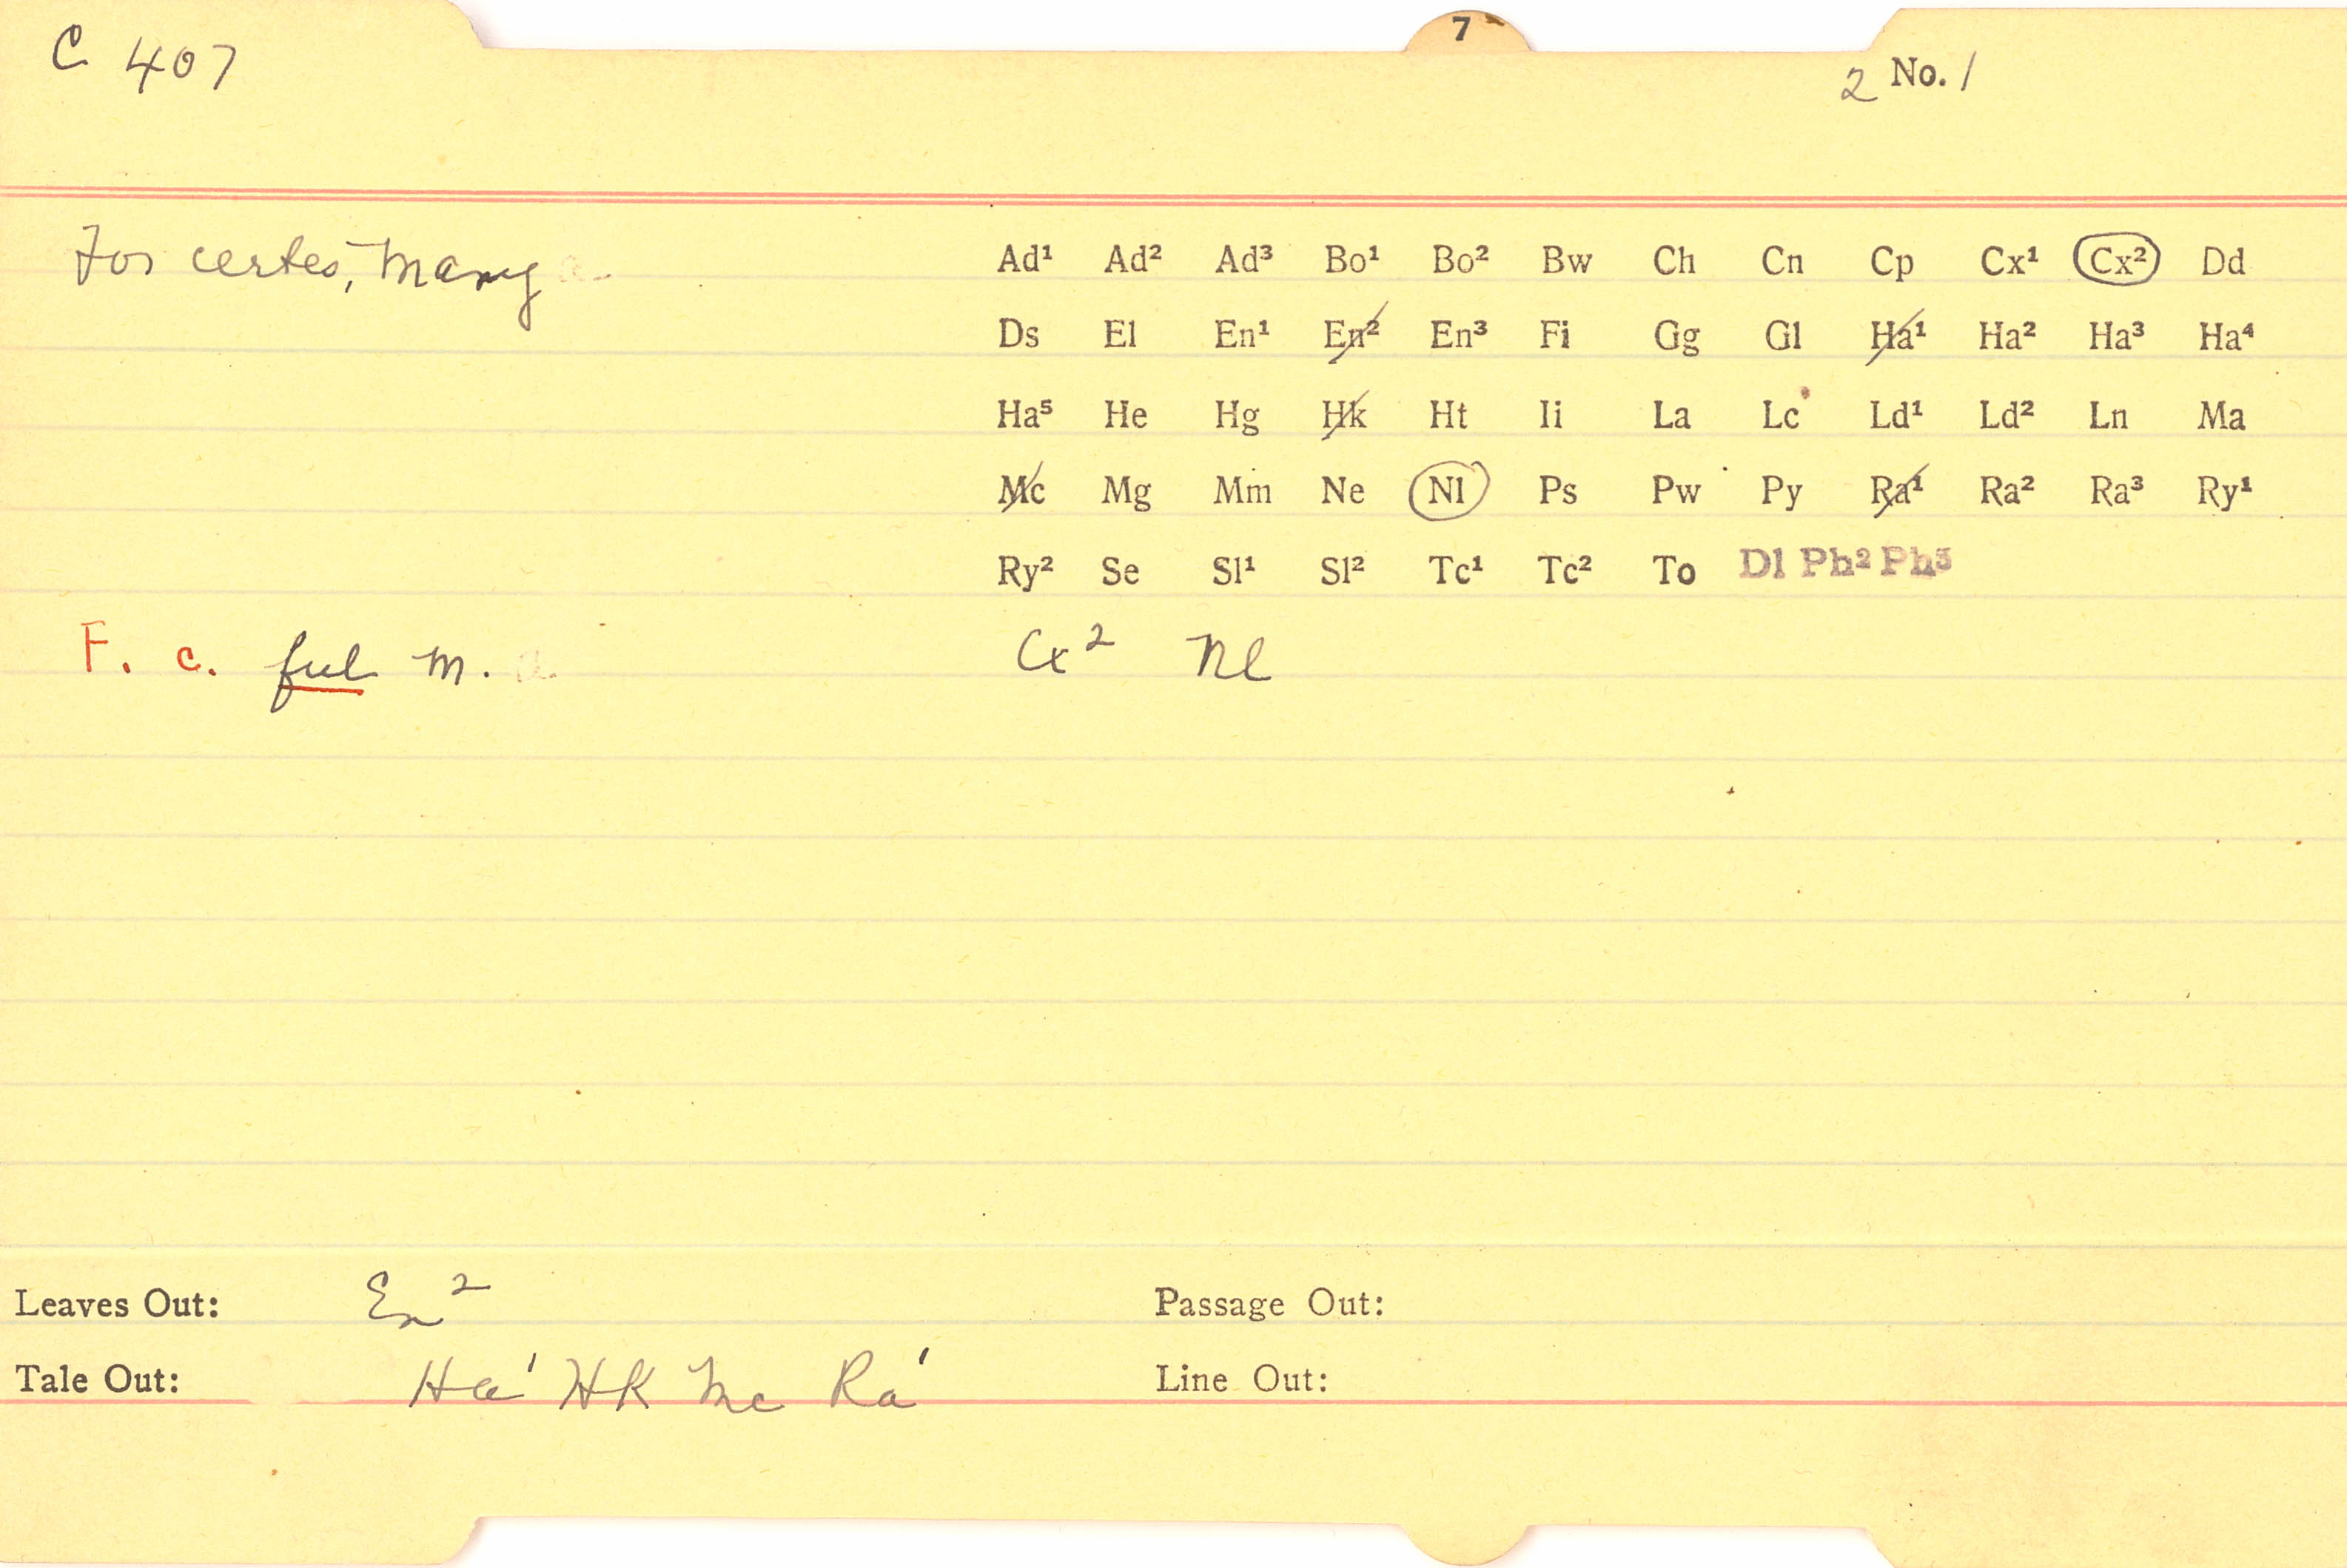 7
C 407
2 No. 1
For certes, many a
Ad¹ Ad² Ad³ Bo¹ Bo² Bw Ch Cn Cp Cx¹ Cx² Dd
Ds El En¹ En² En³ Fi Gg Gl Ha¹ Ha² Ha³ Ha⁴
Ha⁵ He Hg Hk Ht Ii La Lc Ld¹ Ld² Ln Ma
Mc Mg Mm Ne Nl Ps Pw Py Ra¹ Ra² Ra³ Ry¹
Ry² Se Sl¹ Sl² Tc¹ Tc² To Dl Ph² Ph³
F. c. ful m. a Cx² Nl
Leaves Out: En² Passage Out:
Tale Out: Ha¹ HK Mc Ra¹ Line Out: